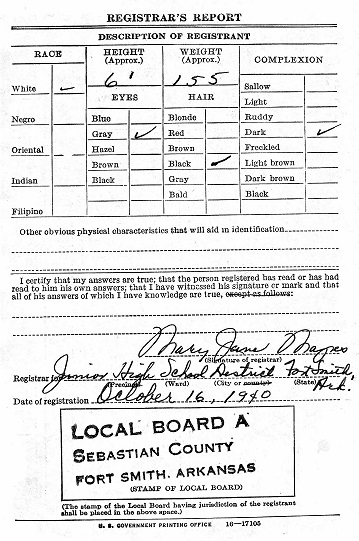 REGISTRAR'S REPORT
DESCRIPTION OF REGISTRANT
RACE
HEIGHT (Approx.)
WEIGHT (Approx.)
COMPLEXION
6'
155
White ✓
EYES
HAIR
Sallow
Light
Negro
Blue
Blonde
Ruddy
Gray ✓
Red
Dark ✓
Oriental
Hazel
Brown
Freckled
Brown
Black ✓
Light brown
Indian
Black
Gray
Dark brown
Bald
Black
Filipino
Other obvious physical characteristics that will aid in identification
I certify that my answers are true; that the person registered has read or has had
read to him his own answers; that I have witnessed his signature or mark and that
all of his answers of which I have knowledge are true, except as follows:
Mary Jane
(Signature of registrar)
Registrar for Junior High School District Fort Smith, Ark.
(Precinct) (Ward) (City or county) (State)
Date of registration October 16, 1940
LOCAL BOARD A
SEBASTIAN COUNTY
FORT SMITH, ARKANSAS
(STAMP OF LOCAL BOARD)
(The stamp of the Local Board having jurisdiction of the registrant
shall be placed in the above space.)
U. S. GOVERNMENT PRINTING OFFICE 16—17105